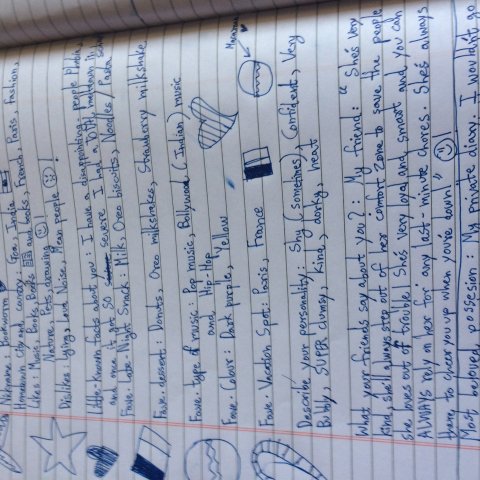 Nickname: Bookworm
Hometown City and country: Goa, India
Likes: Music, Books, Books and books, French, Paris, Fashion,
Nature, Pets, drawing
Dislikes: Lying, and Noise. Mean people
Little-known facts about you: I have a disappointing-people Phobia,
and once it got SO severe I had a Ugly meltdown in
Fave. Late-Night Snack: Milk, Oreo biscuits, Noodles / Pasta
Fave. dessert: Donuts, Oreo milkshakes, Strawberry milkshake.
Fave. type of music: Pop music, Bollywood (Indian) music
and Hip-Hop
Fave. Colour: Dark purple, Yellow
Fave. Vacation Spot: Paris, France
Describe your personality: Shy (sometimes), Confident, Very
Bubbly, SUPER clumsy, kind, dorky, neat
What your friends say about you?: My friend: "She's very
kind, she'll always step out of her comfort zone to save the people
she loves out of trouble! She's very loyal and smart and you can
ALWAYS rely on her for any last-minute chores. She's always
there to cheer you up when you're down!"
Most beloved possesion: My private diary. I wouldn't go